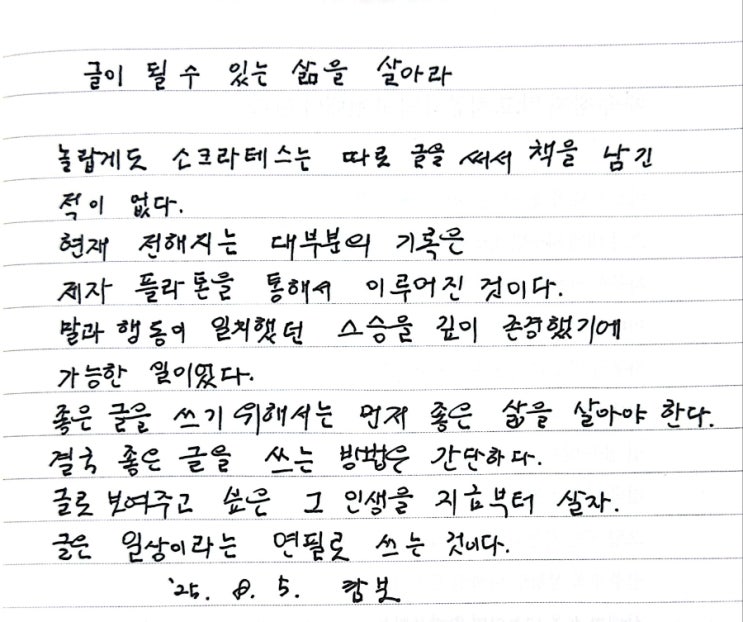 글이 될 수 있는 삶을 살아라
놀랍게도 소크라테스는 따로 글을 써서 책을 남긴
적이 없다.
현재 전해지는 대부분의 기록은
제자 플라톤을 통해서 이루어진 것이다.
말과 행동이 일치했던 스승을 깊이 존경했기에
가능한 일이었다.
좋은 글을 쓰기 위해서는 먼저 좋은 삶을 살아야 한다.
결국 좋은 글을 쓰는 방법은 간단하다.
글로 보여주고 싶은 그 인생을 지금부터 살자.
글은 일상이라는 연필로 쓰는 것이다.
'25. 8. 5.